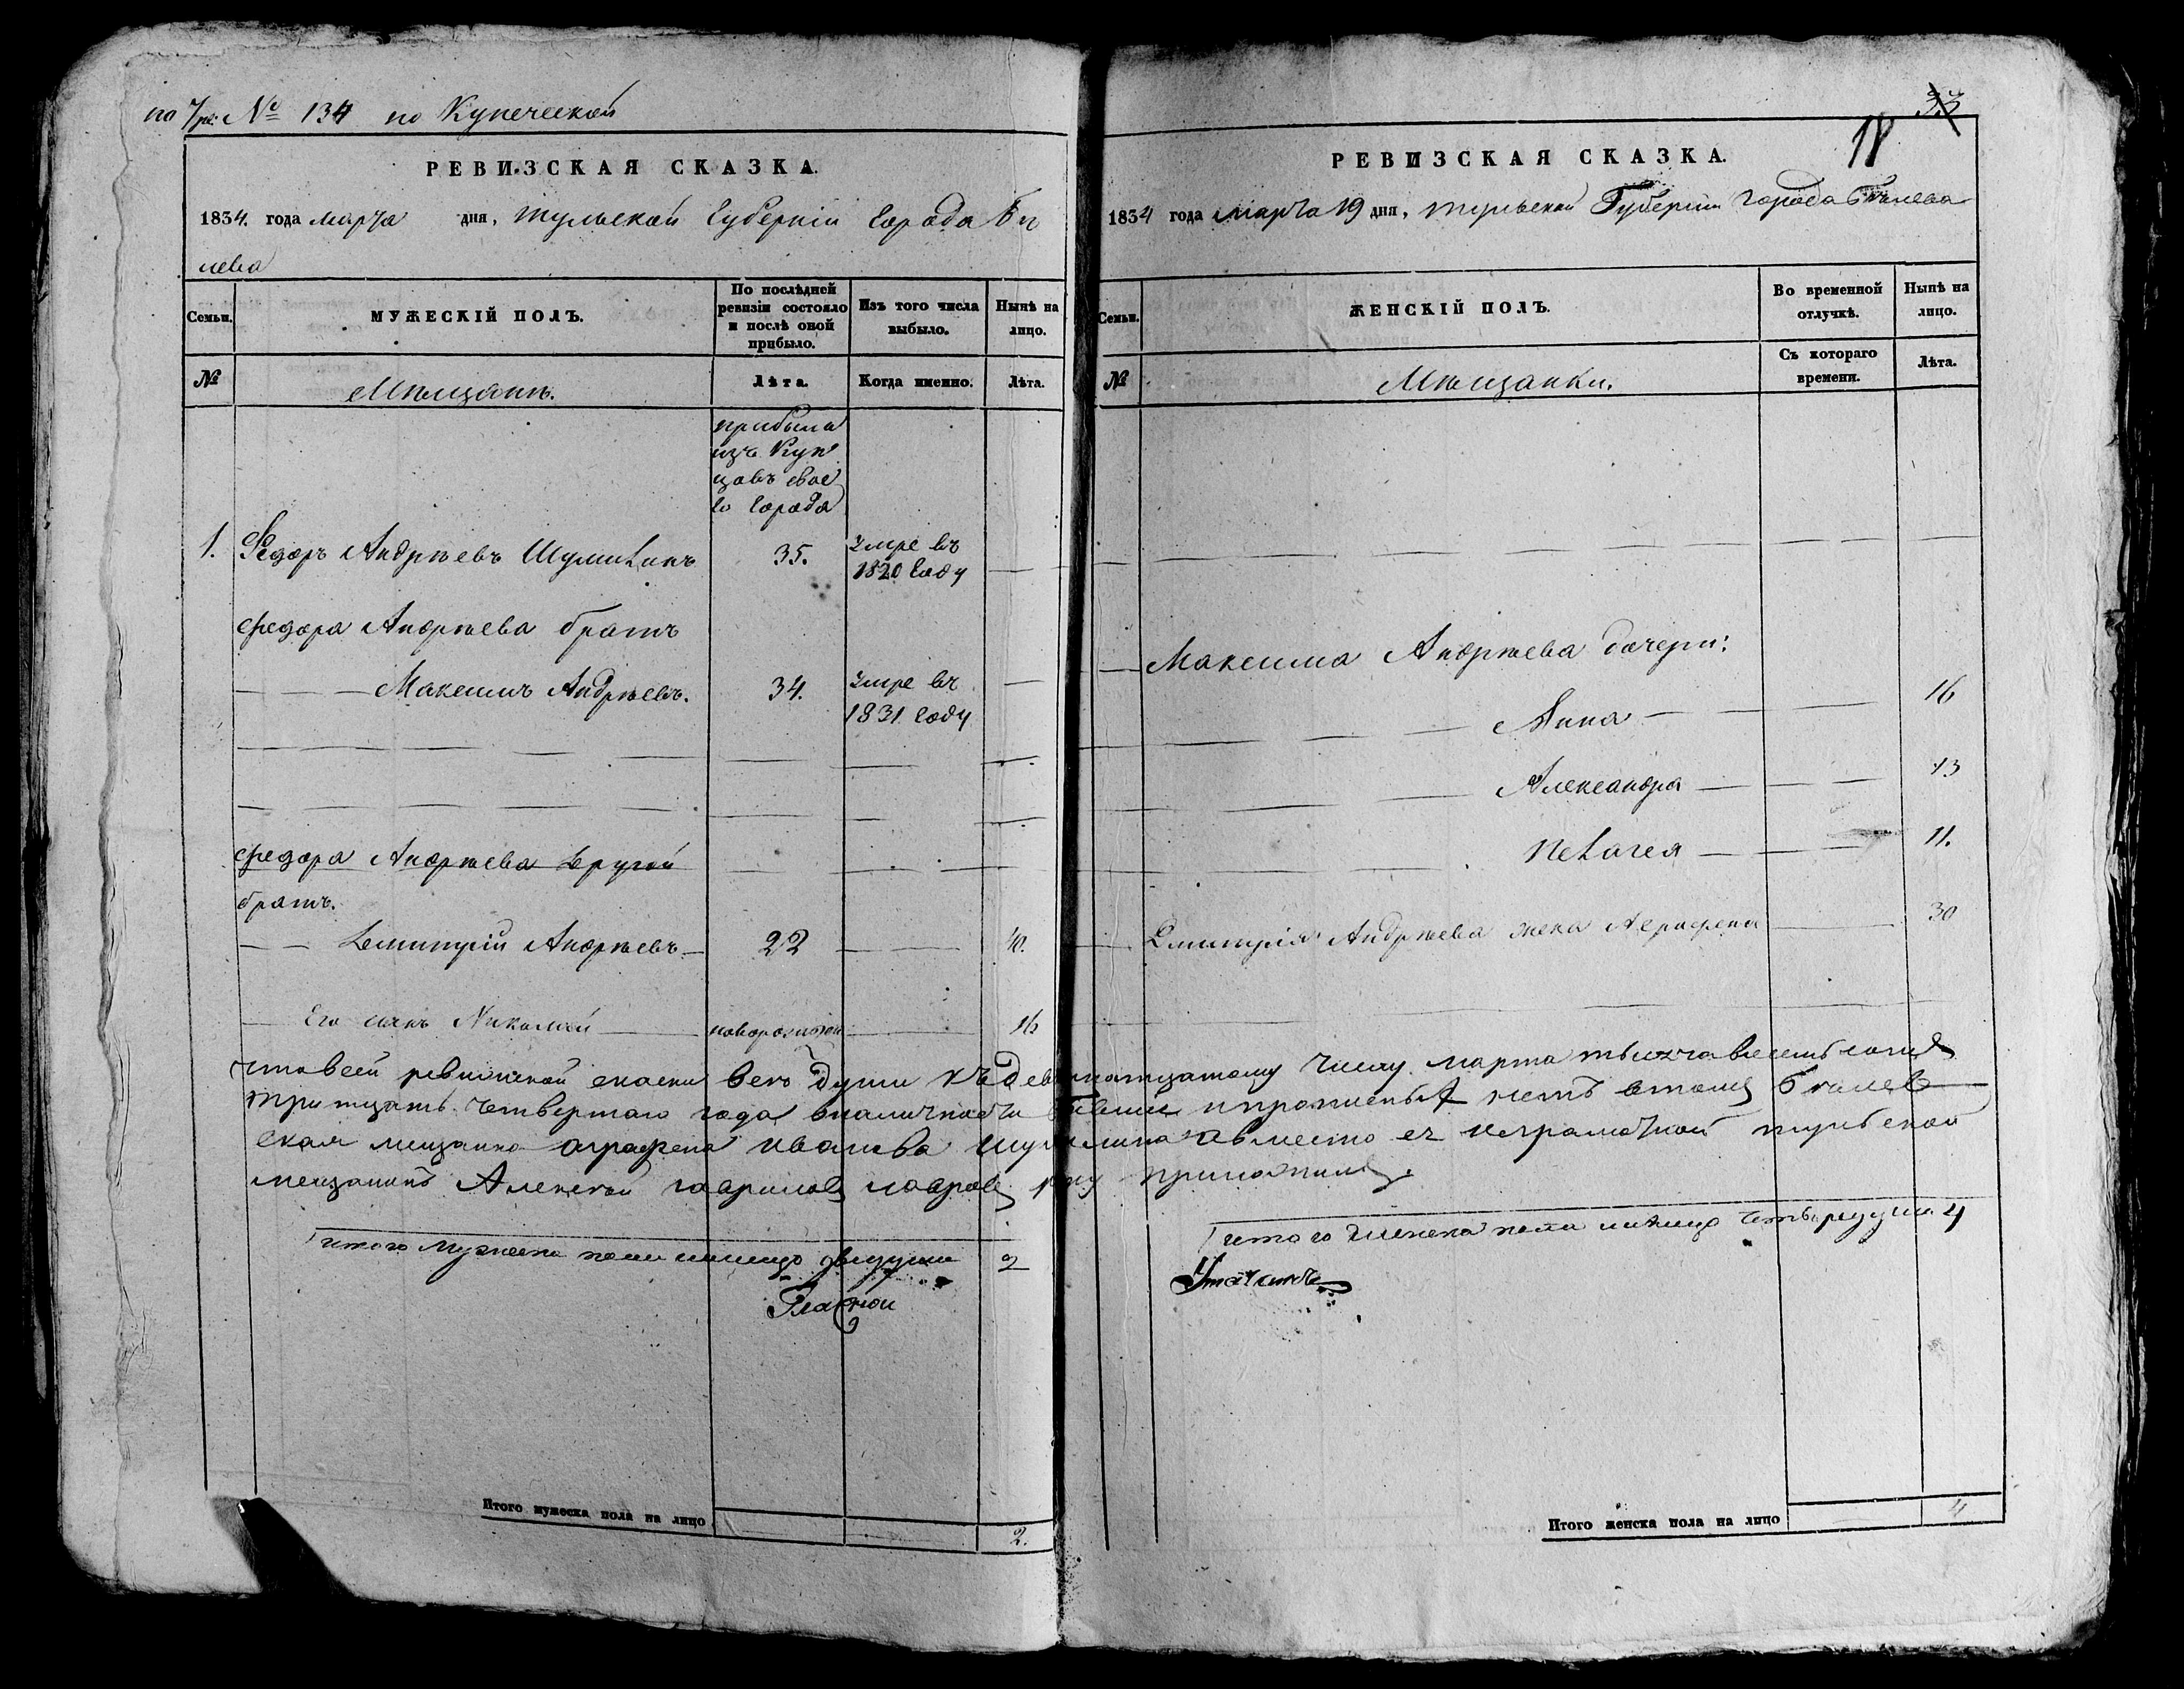 по 7 рев: № 134 по Купеческой
РЕВИЗСКАЯ СКАЗКА.
1834. года марта дня, Тульской Губерніи Города Бѣ
лева
Семьи.
МУЖЕСКІЙ ПОЛЪ.
По послѣдней ревизіи состояло и послѣ оной прибыло.
Изъ того числа выбыло.
Нынѣ на лицо.
№
Мѣщанъ.
Лѣта.
Когда именно.
Лѣта.
прибыла
изъ Куп
цовъ свое
го города
1. Федоръ Андрѣевъ Шумилинъ 35. умре въ
1820 году
Федора Андрѣева братъ
Максимъ Андрѣевъ. 34. умре въ
1831 году
Федора Андрѣева другой
братъ.
Дмитрій Андрѣевъ 22 40.
Его сынъ Николай новорожден 16
итого мужеска пола налицо две души 2
Гласной
Итого мужеска пола на лицо 2.
18
РЕВИЗСКАЯ СКАЗКА.
1834 года марта 19 дня, тульской Губерніи города Бѣлева
Семьи.
ЖЕНСКІЙ ПОЛЪ.
Во временной отлучкѣ.
Нынѣ на лицо.
№
Мѣщанки.
Съ котораго времени.
Лѣта.
Максима Андрѣева дочери:
Анна 16
Александра 13
Пелагея 11.
Дмитрія Андрѣева жена Аграфена 30
что всей ревизской сказки всего души къ девятнатцатому числу марта тысяча восемьсотъ
тритцать четвертаго года вналичности и прописныхъ нетъ втомъ Белев
ская мещанка аграфена иванова шумилина авместо ее неграмотной тульской
мещанинъ Алексей гавриловъ лавровъ руку приложилъ.
итого женска пола налицо четыре души 4
Итого женска пола на лицо 4